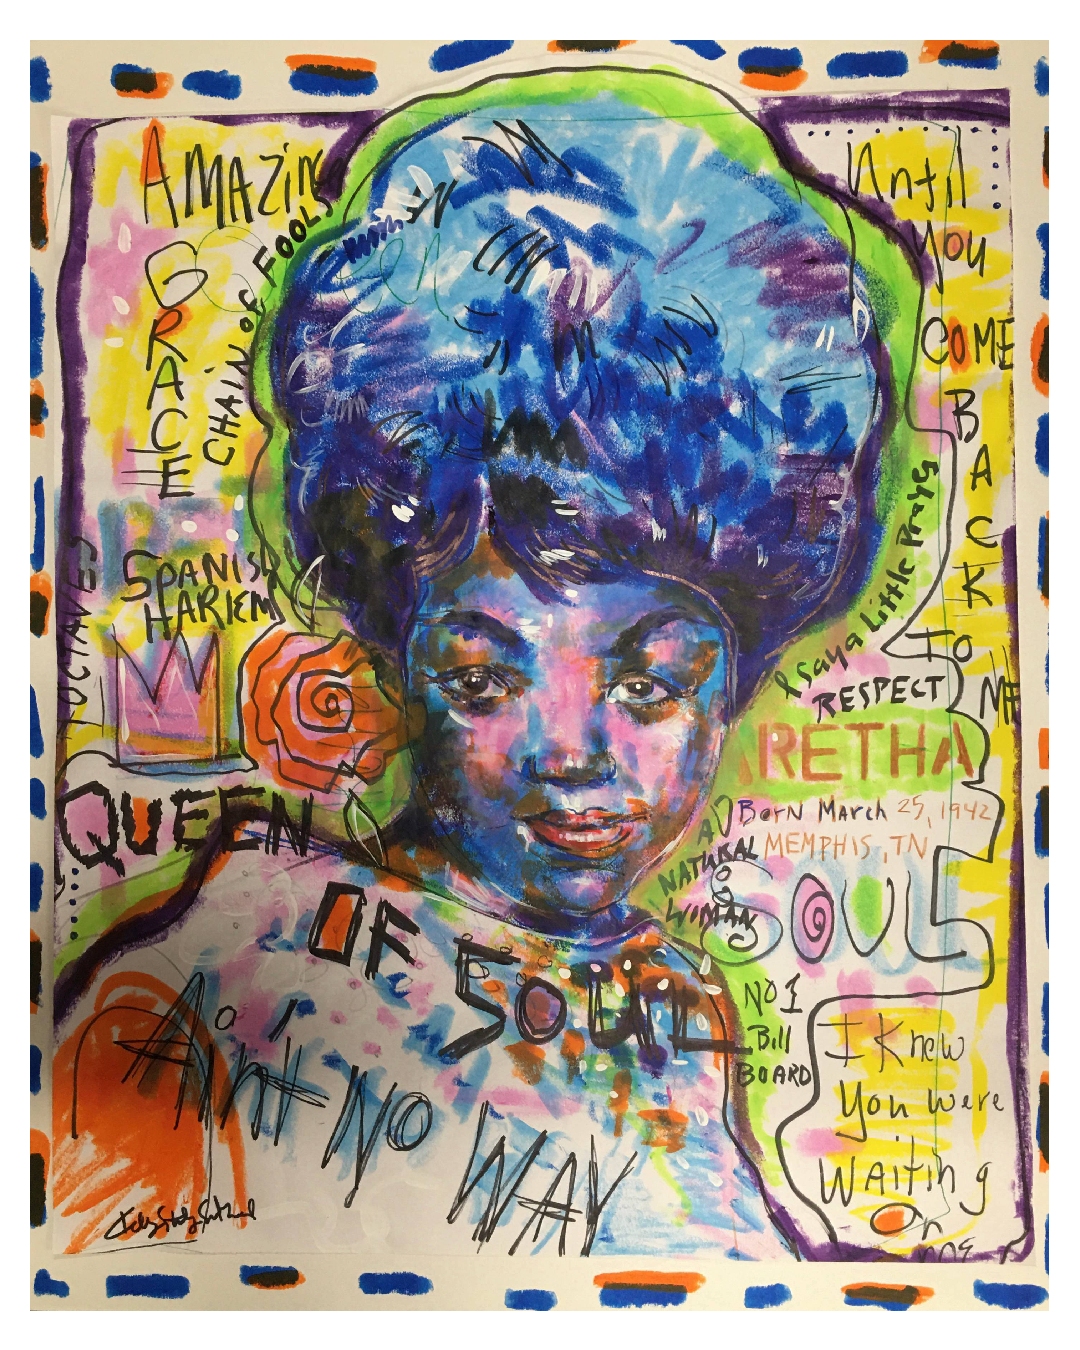 AMAZING
GRACE
CHAIN OF FOOLS
Until
You
COME
BACK
TO
ME
SPANISH
HARLEM
OCTAVES
I say a Little Prayer
RESPECT
RETHA
Born March 25, 1942
MEMPHIS, TN
A
NATURAL
WOMAN
SOUL
QUEEN
OF SOUL
NO 1
Bill
BOARD
Ain't NO WAY
I Knew
You were
Waiting
On
me